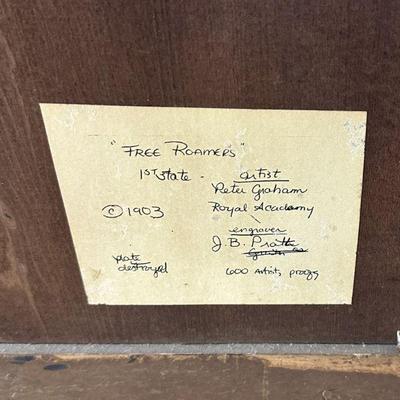 "FREE ROAMERS"
1ST State - artist
Peter Graham
© 1903 Royal Academy
engraver
J.B. Pratt
plate
destroyed 600 Artists proofs